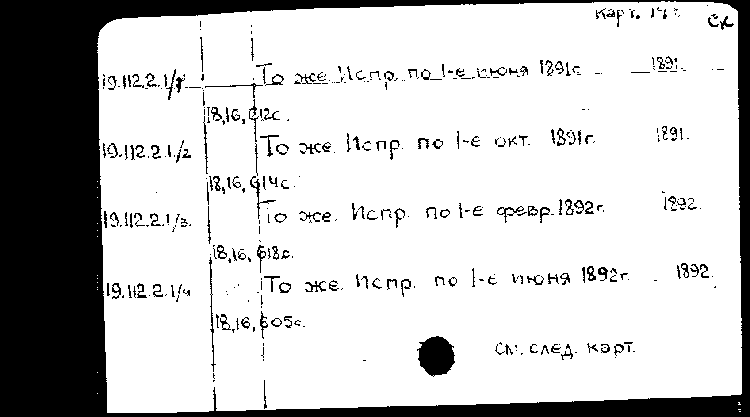 Карт. СК
19.112.2.1/1 То же. Испр. по 1-е июня 1891г. 1891.
18,16,612с.
19.112.2.1/2 То же. Испр. по 1-е окт. 1891г. 1891.
18,16,614с.
19.112.2.1/3. То же. Испр. по 1-е февр. 1892г. 1892.
18,16,618с.
19.112.2.1/4 То же. Испр. по 1-е июня 1892г. 1892.
18,16,605с.
См. след. карт.